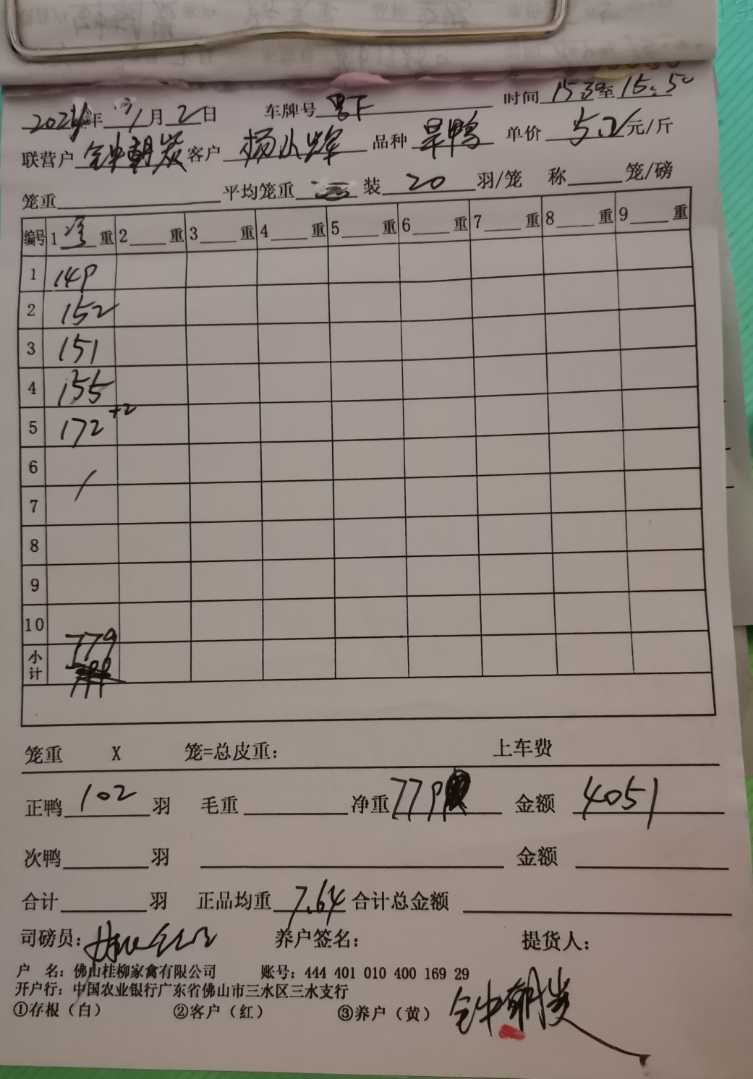 2024年 1月2日 车牌号 时间 15:3 至 15:50
联营户 钟朝炭 客户 杨山辉 品种 旱鸭 单价 5.2 元/斤
笼重 平均笼重 装 20 羽/笼 称 笼/磅
编号 1 净 重 2 重 3 重 4 重 5 重 6 重 7 重 8 重 9 重
1 149
2 152
3 151
4 155
5 172 +2
6
7
8
9
10
小计 779
笼重 X 笼=总皮重： 上车费
正鸭 102 羽 毛重 净重 779 金额 4051
次鸭 羽 金额
合计 羽 正品均重 7.64 合计总金额
司磅员： 养户签名： 提货人：
户 名：佛山桂柳家禽有限公司 账号：444 401 010 400 169 29
开户行：中国农业银行广东省佛山市三水区三水支行
①存根（白） ②客户（红） ③养户（黄） 钟朝炭